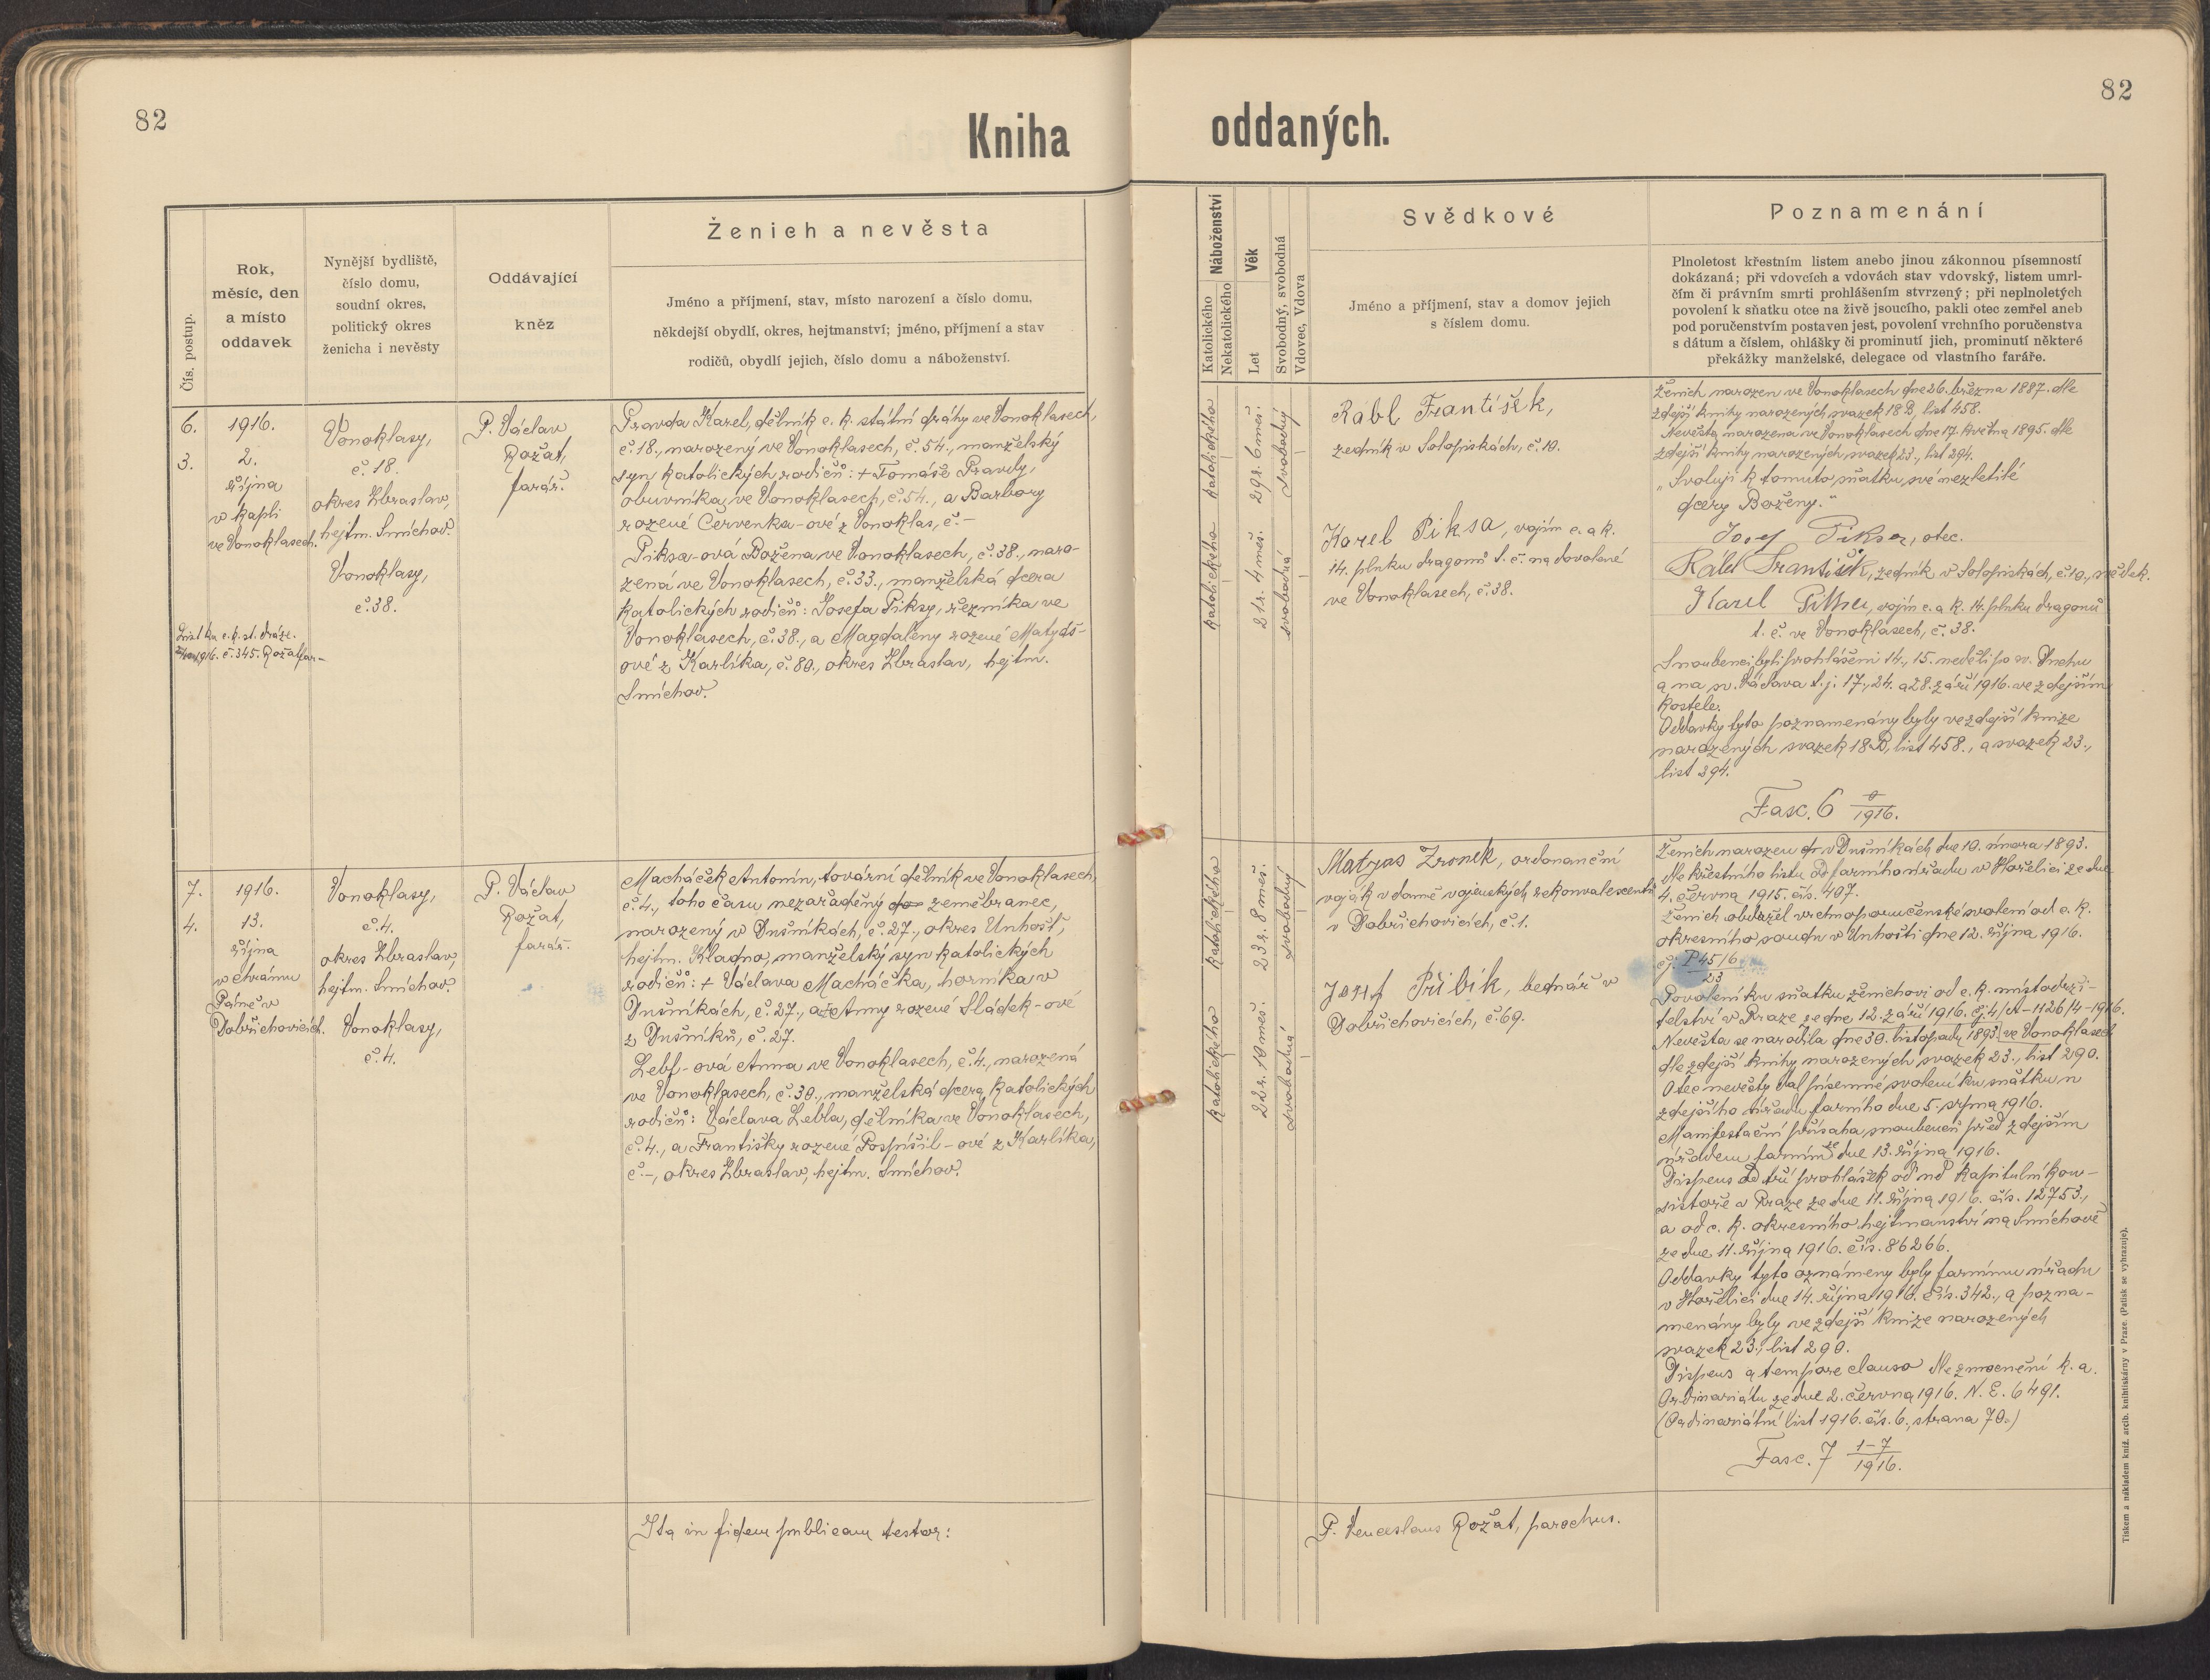 82
Kniha
oddaných.
82
Čís. postup.
Rok,
měsíc, den
a místo
oddavek
Nynější bydliště,
číslo domu,
soudní okres,
politický okres
ženicha i nevěsty
Oddávající
kněz
Ženich a nevěsta
Jméno a příjmení, stav, místo narození a číslo domu,
někdejší obydlí, okres, hejtmanství; jméno, příjmení a stav
rodičů, obydlí jejich, číslo domu a náboženství.
Náboženství
Katolického
Nekatolického
Věk
Let
Svobodný, svobodná
Vdovec, Vdova
Svědkové
Jméno a příjmení, stav a domov jejich
s číslem domu.
Poznamenání
Plnoletost křestním listem anebo jinou zákonnou písemností
dokázaná; při vdovcích a vdovách stav vdovský, listem umrl-
čím či právním smrti prohlášením stvrzený; při neplnoletých
povolení k sňatku otce na živě jsoucího, pakli otec zemřel aneb
pod poručenstvím postaven jest, povolení vrchního poručenstva
s dátum a číslem, ohlášky či prominutí jich, prominutí některé
překážky manželské, delegace od vlastního faráře.
6.
3.
1916.
2.
října
v kapli
ve Vonoklasech.
1916. č. 345. Rožat far-
Vonoklasy,
č. 18.
okres Zbraslav,
hejtm. Smíchov.
Vonoklasy,
č. 38.
P. Václav
Rožat,
farář.
Pravda Karel, dělník c. k. státní dráhy ve Vonoklasech,
č. 18., narozený ve Vonoklasech, č. 54., manželský
syn katolických rodičů: + Tomáše Pravdy,
obuvníka ve Vonoklasech, č. 54., a Barbory
rozené Červenka-ové z Vonoklas, č. -
Piksa-ová Božena ve Vonoklasech, č. 38., naro-
zená ve Vonoklasech, č. 33., manželská dcera
katolických rodičů: Josefa Piksy, řezníka ve
Vonoklasech, č. 38., a Magdaleny rozené Matyáš-
ové z Karlíka, č. 80., okres Zbraslav, hejtm.
Smíchov.
katolického
29 r. 6 měs.
svobodný
katolického
21 r. 4 měs.
svobodná
Rábl František,
zedník v Solopiskách, č. 10.
Karel Piksa, vojín c. a k.
14. pluku dragonů t. č. na dovolené
ve Vonoklasech, č. 38.
Ženich narozen ve Vonoklasech dne 26. března 1887. dle
zdejší knihy narozených svazek 18 B, list 458.
Nevěsta narozena ve Vonoklasech dne 17. května 1895. dle
zdejší knihy narozených svazek 23., list 294.
„Svoluji k tomuto sňatku své nezletilé
dcery Boženy."
Josef Piksa, otec.
Rábl František, zedník v Solopiskách, č. 10., svědek.
Karel Piksa, vojín c. a k. 14. pluku dragonů
t. č. ve Vonoklasech, č. 38.
Snoubenci byli prohlášeni 14., 15. neděli po sv. Duchu
a na sv. Václava t. j. 17., 24. a 28. září 1916. ve zdejším
kostele.
Oddavky tyto poznamenány byly ve zdejší knize
narozených svazek 18 B, list 458., a svazek 23.,
list 294.
Fasc. 6 0/1916.
7.
4.
1916.
13.
října
v chrámu
Páně v
Dobřichovicích.
Vonoklasy,
č. 4.
okres Zbraslav,
hejtm. Smíchov.
Vonoklasy,
č. 4.
P. Václav
Rožat,
farář.
Macháček Antonín, tovární dělník ve Vonoklasech,
č. 4., toho času nezařaděný zeměbranec,
narozený v Dušníkách, č. 27., okres Unhošť,
hejtm. Kladno, manželský syn katolických
rodičů: + Václava Macháčka, horníka v
Dušníkách, č. 27., a Anny rozené Sládek-ové
z Dušníků, č. 27.
Lebl-ová Anna ve Vonoklasech, č. 4., narozená
ve Vonoklasech, č. 30., manželská dcera katolických
rodičů: Václava Lebla, dělníka ve Vonoklasech,
č. 4., a Františky rozené Pospíšil-ové z Karlíka,
č. -, okres Zbraslav, hejtm. Smíchov.
katolického
23 r. 8 měs.
svobodný
katolického
22 r. 10 měs.
svobodná
Matyas Zronek, ordonanční
voják v domě vojenských rekonvalescentů
v Dobřichovicích, č. 1.
Josef Přibík, bednář v
Dobřichovicích, č. 69.
Ženich narozen v Dušníkách dne 10. února 1893.
dle křestního listu od farního úřadu v Hořelici ze dne
4. června 1915. čís. 407.
Ženich obdržel vrchnoporučenské svolení od c. k.
okresního soudu v Unhošti dne 12. října 1916.
čj. P 45/6
23
Povolení ku sňatku ženichovi od c. k. místodrži-
telství v Praze ze dne 12. září 1916. čj. 4/A-1126/4-1916.
Nevěsta se narodila dne 30. listopadu 1893 ve Vonoklasech
dle zdejší knihy narozených svazek 23., list 290.
Otec nevěsty dal písemné svolení ku sňatku u
zdejšího úřadu farního dne 5. srpna 1916.
Manifestační přísaha snoubenců před zdejším
úřadem farním ze dne 13. října 1916.
Dispens od tří prohlášek od nd kapitulní kon-
sistoře v Praze ze dne 11. října 1916. čís. 12753.,
a od c. k. okresního hejtmanství na Smíchově
ze dne 11. října 1916. čís. 86266.
Oddavky tyto oznámeny byly farnímu úřadu
v Hořelici dne 14. října 1916. čís. 342., a pozna-
menány byly ve zdejší knize narozených
svazek 23., list 290.
Dispens a tempore clauso dle zmocnění k. a.
Ordinariátu ze dne 2. června 1916. N. E. 6491.
(Ordinariátní list 1916. čís. 6., strana 70.)
Fasc. 7 1-7/1916.
Ita in fidem publicam testor:
P. Venceslaus Rožat, parochus.
Tiskem a nákladem kníž. arcib. knihtiskárny v Praze. (Patisk se vyhrazuje).